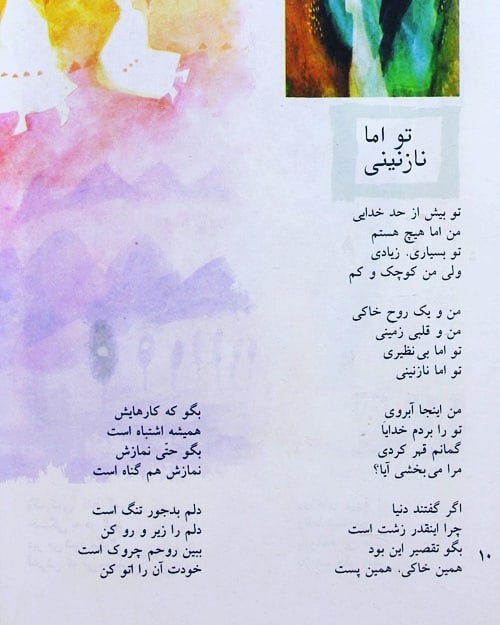 تو اما
نازنینی
تو بیش از حد خدایی
من اما هیچ هستم
تو بسیاری، زیادی
ولی من کوچک و کم
من و یک روح خاکی
من و قلبی زمینی
تو اما بی‌نظیری
تو اما نازنینی
من اینجا آبروی
تو را بردم خدایا
گمانم قهر کردی
مرا می‌بخشی آیا؟
اگر گفتند دنیا
چرا اینقدر زشت است
بگو تقصیر این بود
همین خاکی، همین پست
بگو که کارهایش
همیشه اشتباه است
بگو حتّی نمازش
نمازش هم گناه است
دلم بدجور تنگ است
دلم را زیر و رو کن
ببین روحم چروک است
خودت آن را اتو کن
۱۰